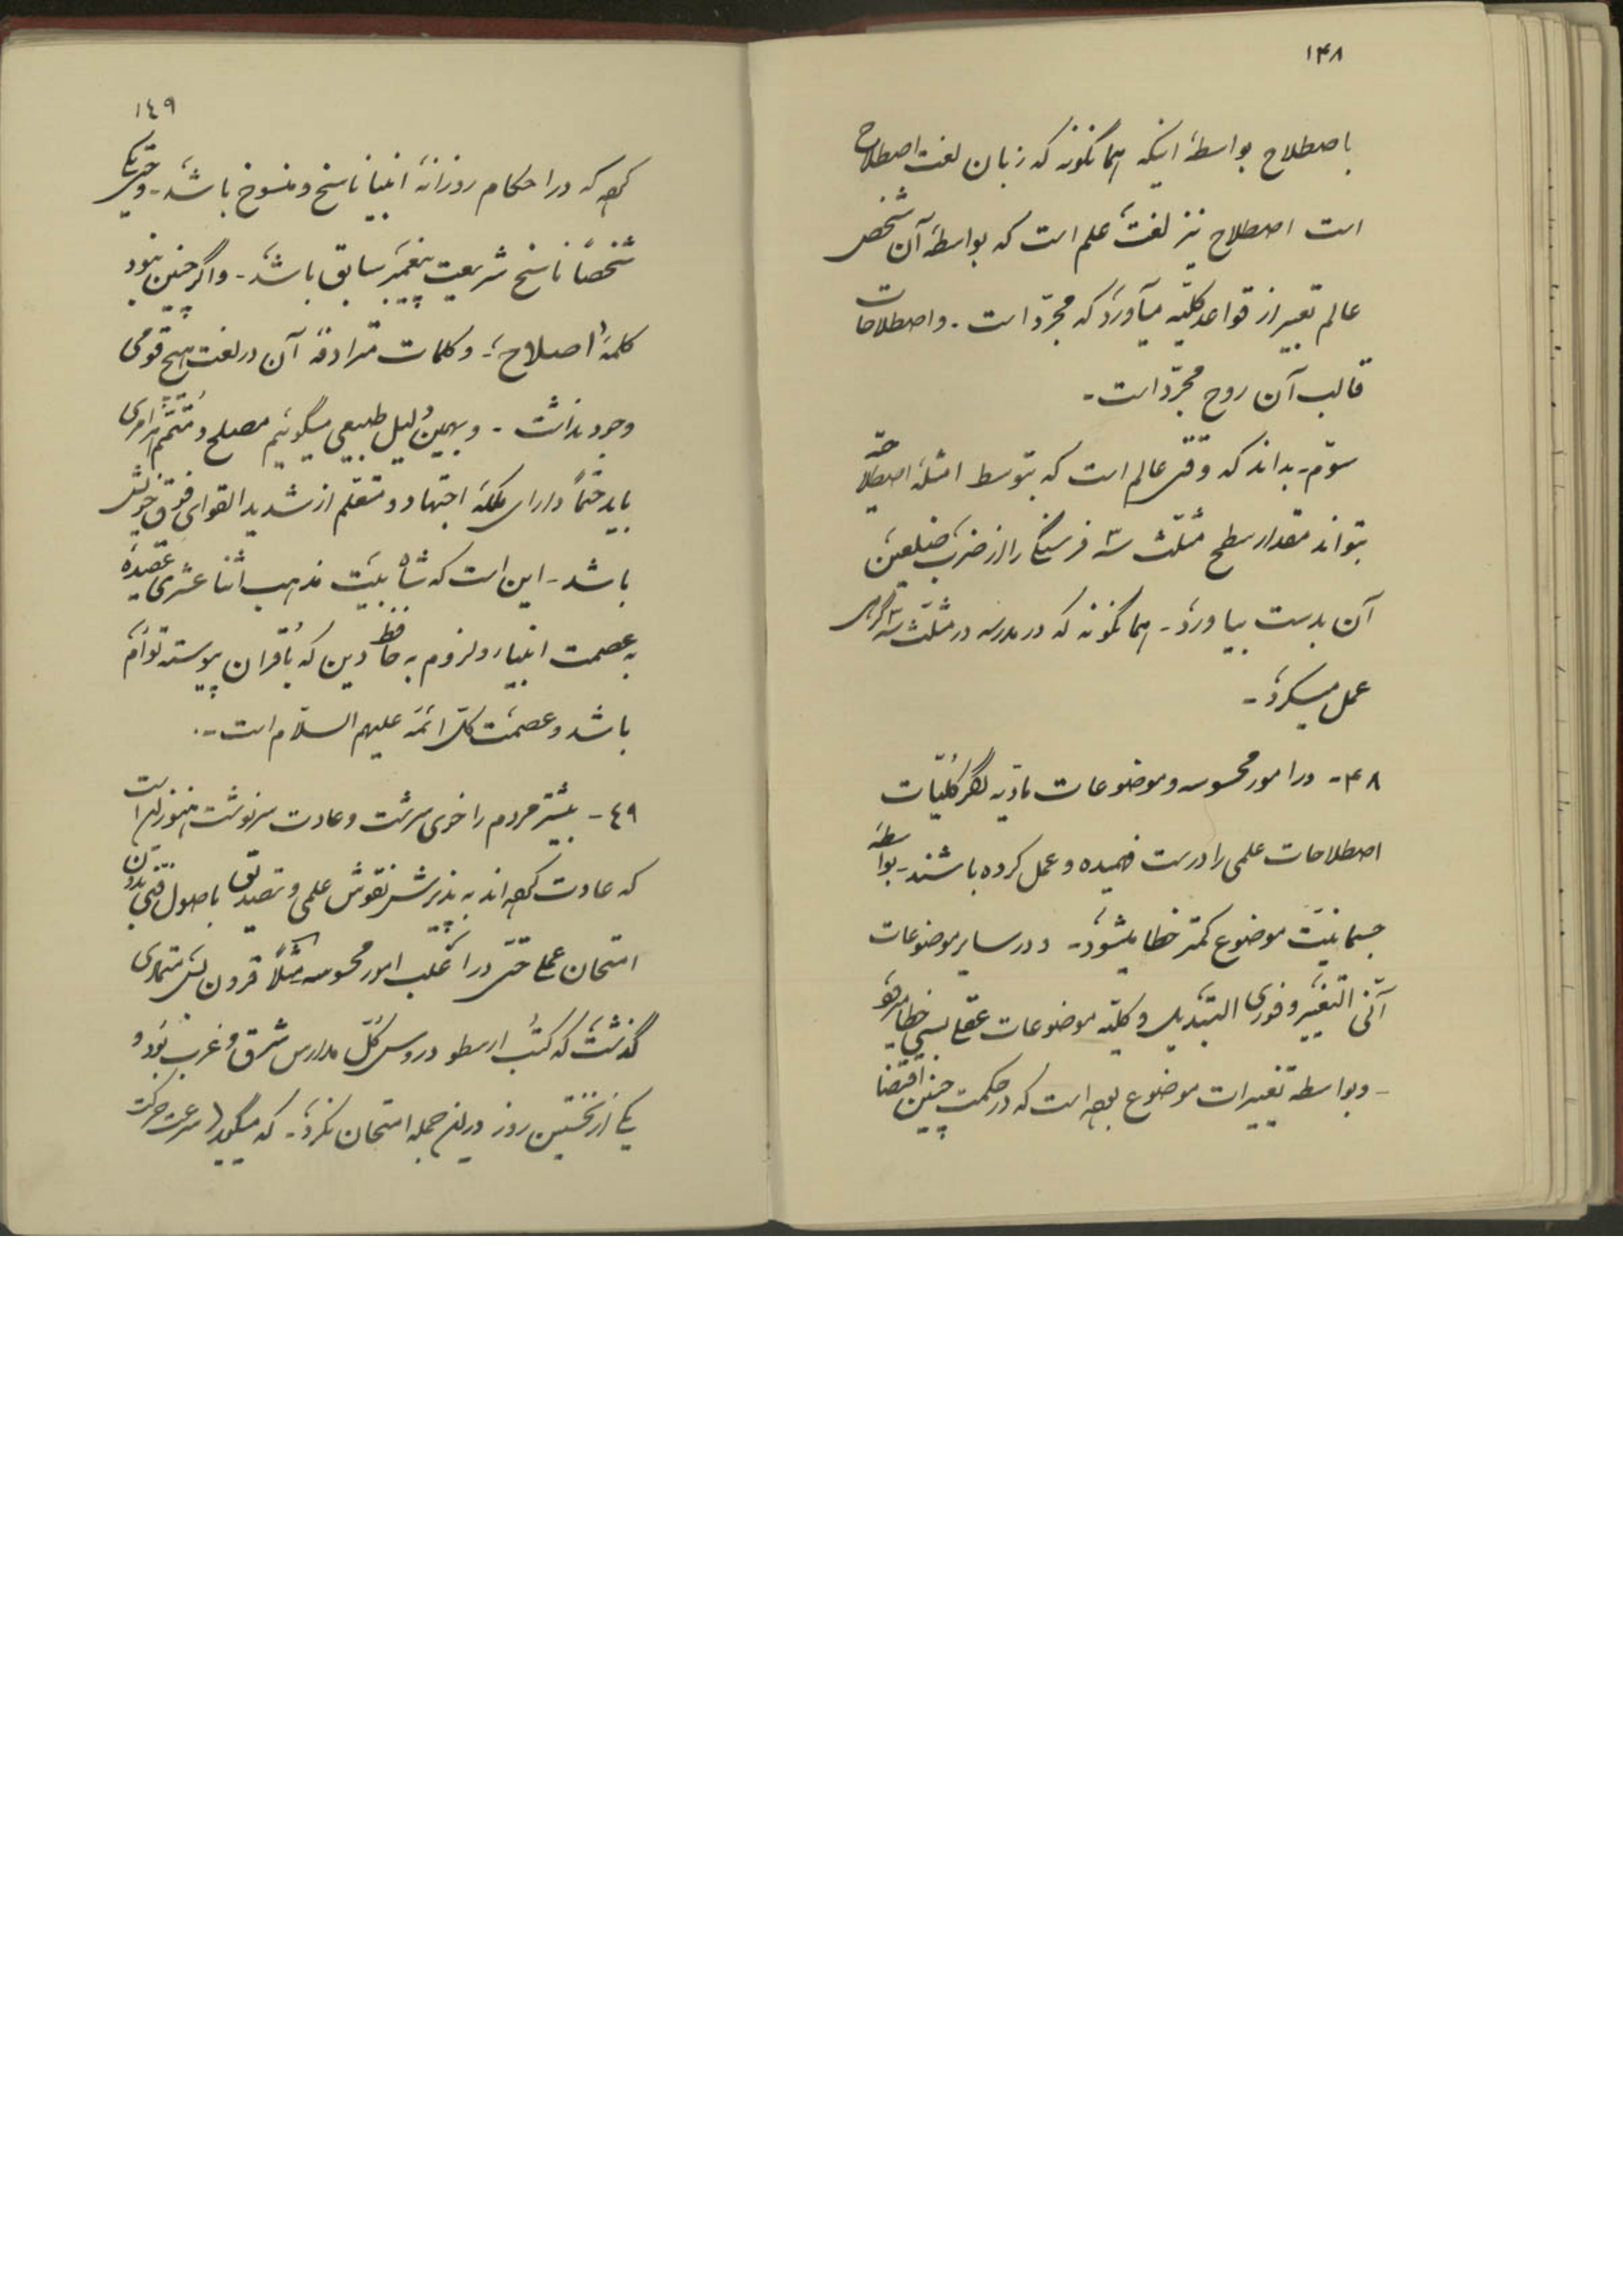 ۱۴۸
باصطلاح بواسطهٔ اینکه همانگونه که زبان لغت اصطلاح
است اصطلاح نیز لغت علم است که بواسطهٔ آن شخص
عالم تعبیر از قواعد کلیّه میآورد که مجرّد است - واصطلاحات
قالب آن روح مجرّد است -
سوّم - بداند که وقتی عالم است که بتوسط امثلهٔ اصطلاحیّه
بتواند مقدار سطح مثلّث سه فرسنگی را از ضرب ضلعین
آن بدست بیاورد - همانگونه که در مدرسه در مثلّث سه گرهی
عمل میکرد -
۴۸ - در امور محسوسه وموضوعات مادّیه اگر کلّیّات
اصطلاحات علمی را درست فهمیده وعمل کرده باشند - بواسطهٔ
جسمانیّت موضوع کمتر خطا میشود - و در سایر موضوعات
آنی التغیّر وفوری التبدیل وکلیّه موضوعات عقلی بسی خطا میرود
- وبواسطه تغییرات موضوع بوده است که در حکمت چنین اقتضا
۱٤۹
کرده که در احکام روزانهٔ انبیا ناسخ ومنسوخ باشد - وحتّی یک
شخصاً ناسخ شریعت پیغمبر سابق باشد - واگر چنین نبود
کلمهٔ اصلاح - وکلمات مترادفهٔ آن در لغت هیچ قومی
وجود نداشت - وبهمین دلیل طبیعی میگوئیم مصلح ومتمّم هر امری
باید حتماً دارای ملکهٔ اجتهاد ومتعلّم از شدید القوای فوق خویش
باشد - این است که شاه بیت مذهب اثنا عشری عقیدهٔ
به عصمت انبیاء ولزوم به حافظ دین که با قران پیوسته توأم
باشد وعصمت کلّ ائمّه علیهم السّلام است -
٤۹ - بیشتر مردم را خوی سرشت وعادت سرنوشت هنوز این است
که عادت کرده اند به پذیرش نقوش علمی وتصدیق باصول فنّی بدون
امتحان عملی حتّی در اغلب امور محسوسه مثلاً قرون بس متمادی
گذشت که کتب ارسطو دروس کلّ مدارس شرق و غرب بود و
یکی از نخستین روز در این جمله امتحان نکرد - که میگوید (سرعت حرکت